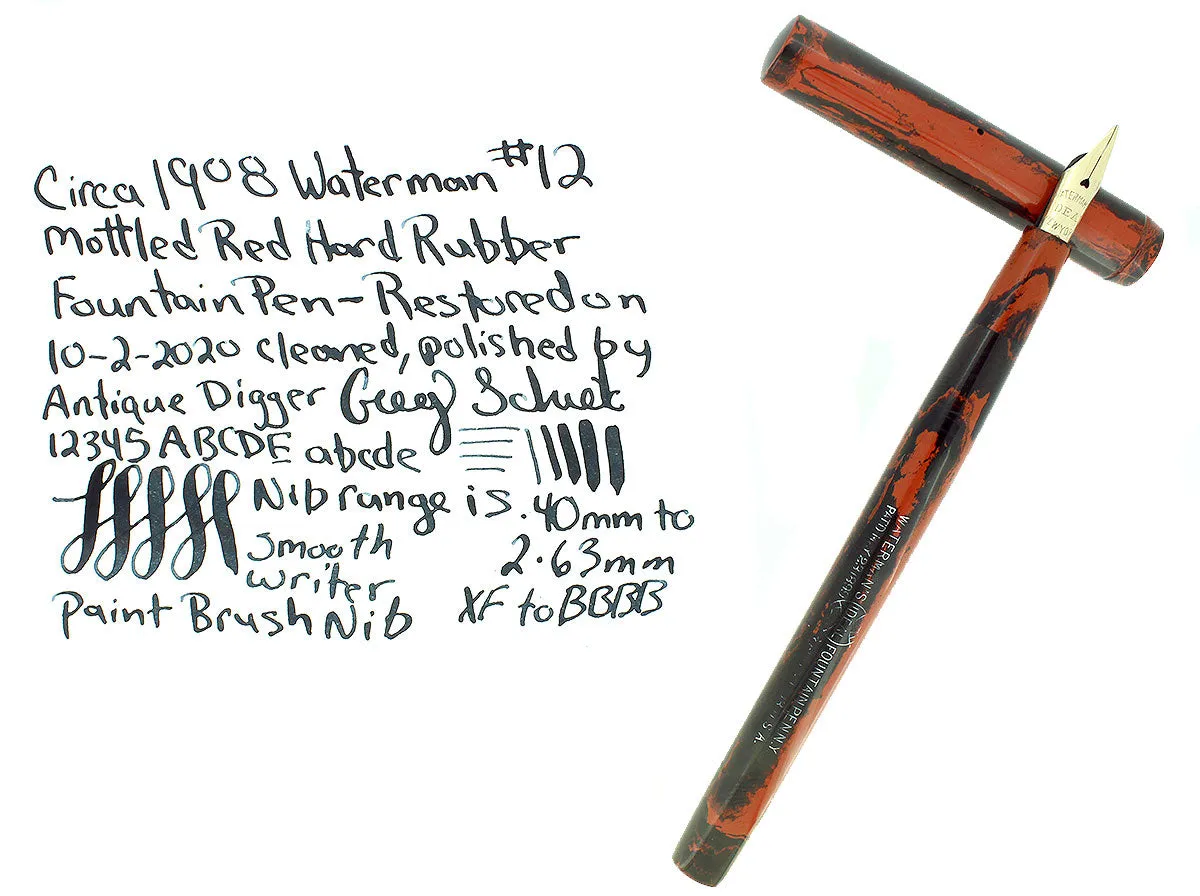 Circa 1908 Waterman #12
Mottled Red Hard Rubber
Fountain Pen - Restored on
10-2-2020 cleaned, polished by
Antique Digger
12345 ABCDE abcde
Nib range is .40mm to
2.63mm
XF to BBBB
smooth
writer
Paint Brush Nib
WATERMAN'S (IDEAL) FOUNTAIN PEN N.Y.